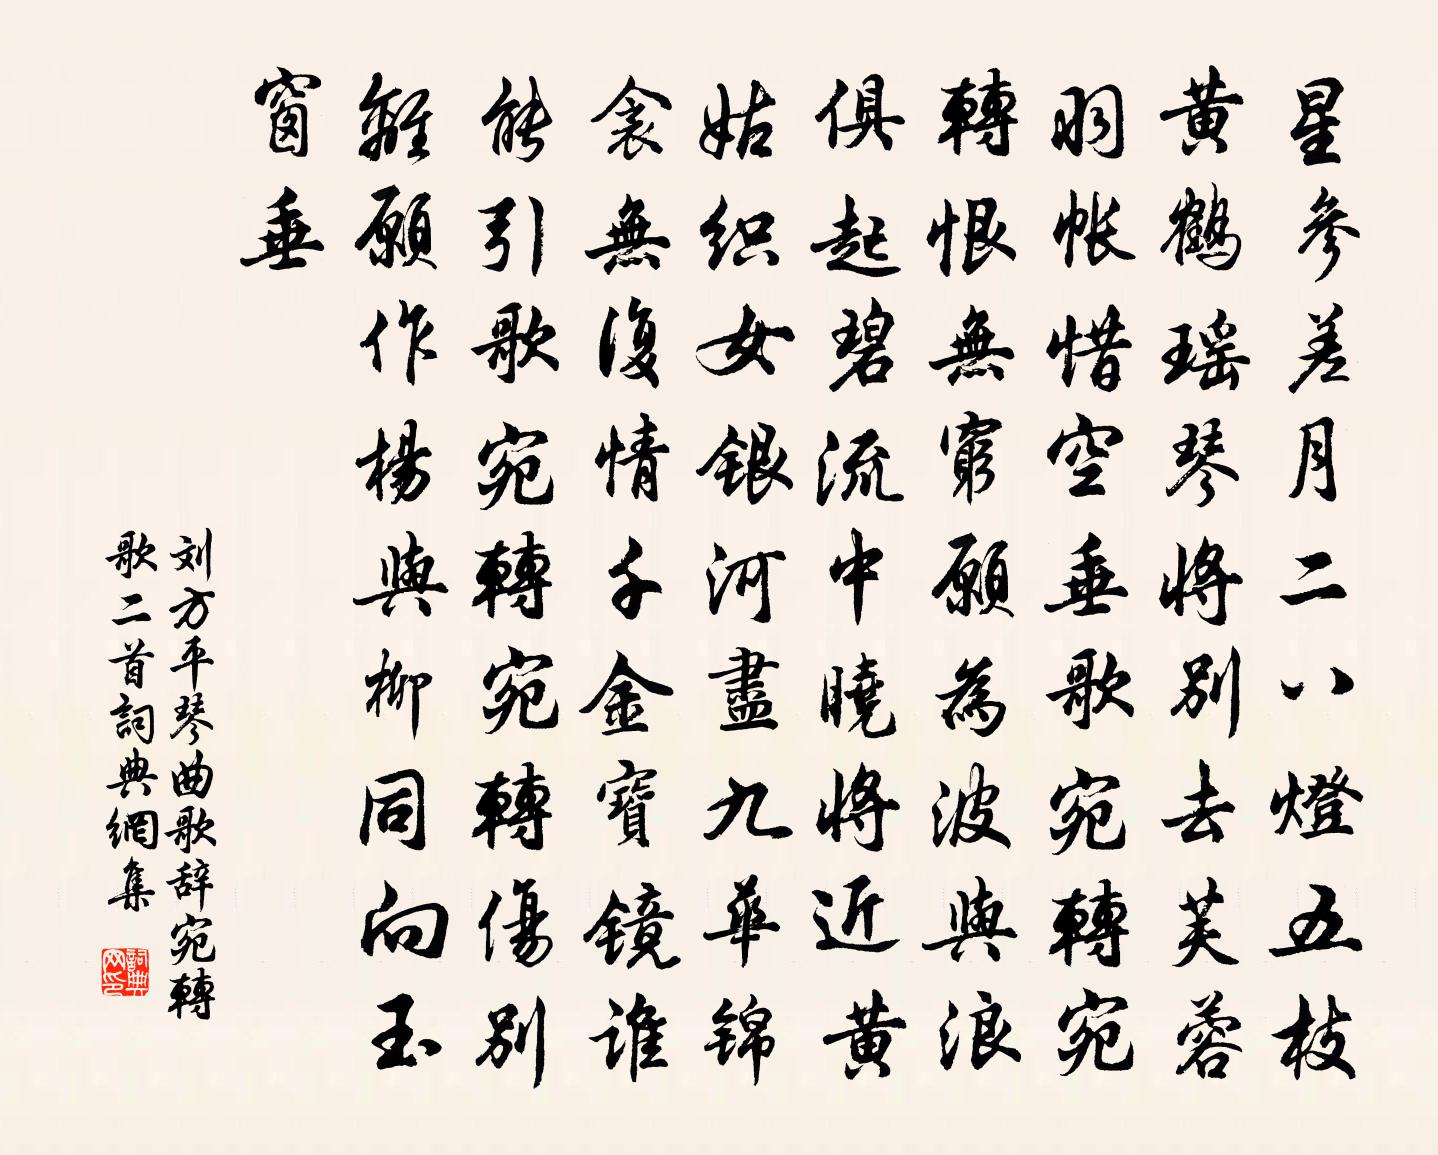 星參差月二八燈五枝
黄鶴瑶琴將別去芙蓉
羽帐惜空垂歌宛轉宛
轉恨無窮願為波與浪
俱起碧流中曉將近黄
姑织女银河盡九華锦
衾無復情千金寶镜谁
能引歌宛轉宛轉傷別
離願作楊與柳同向玉
窗垂
刘方平琴曲歌辞宛轉
歌二首詞典網集
詞典
网印